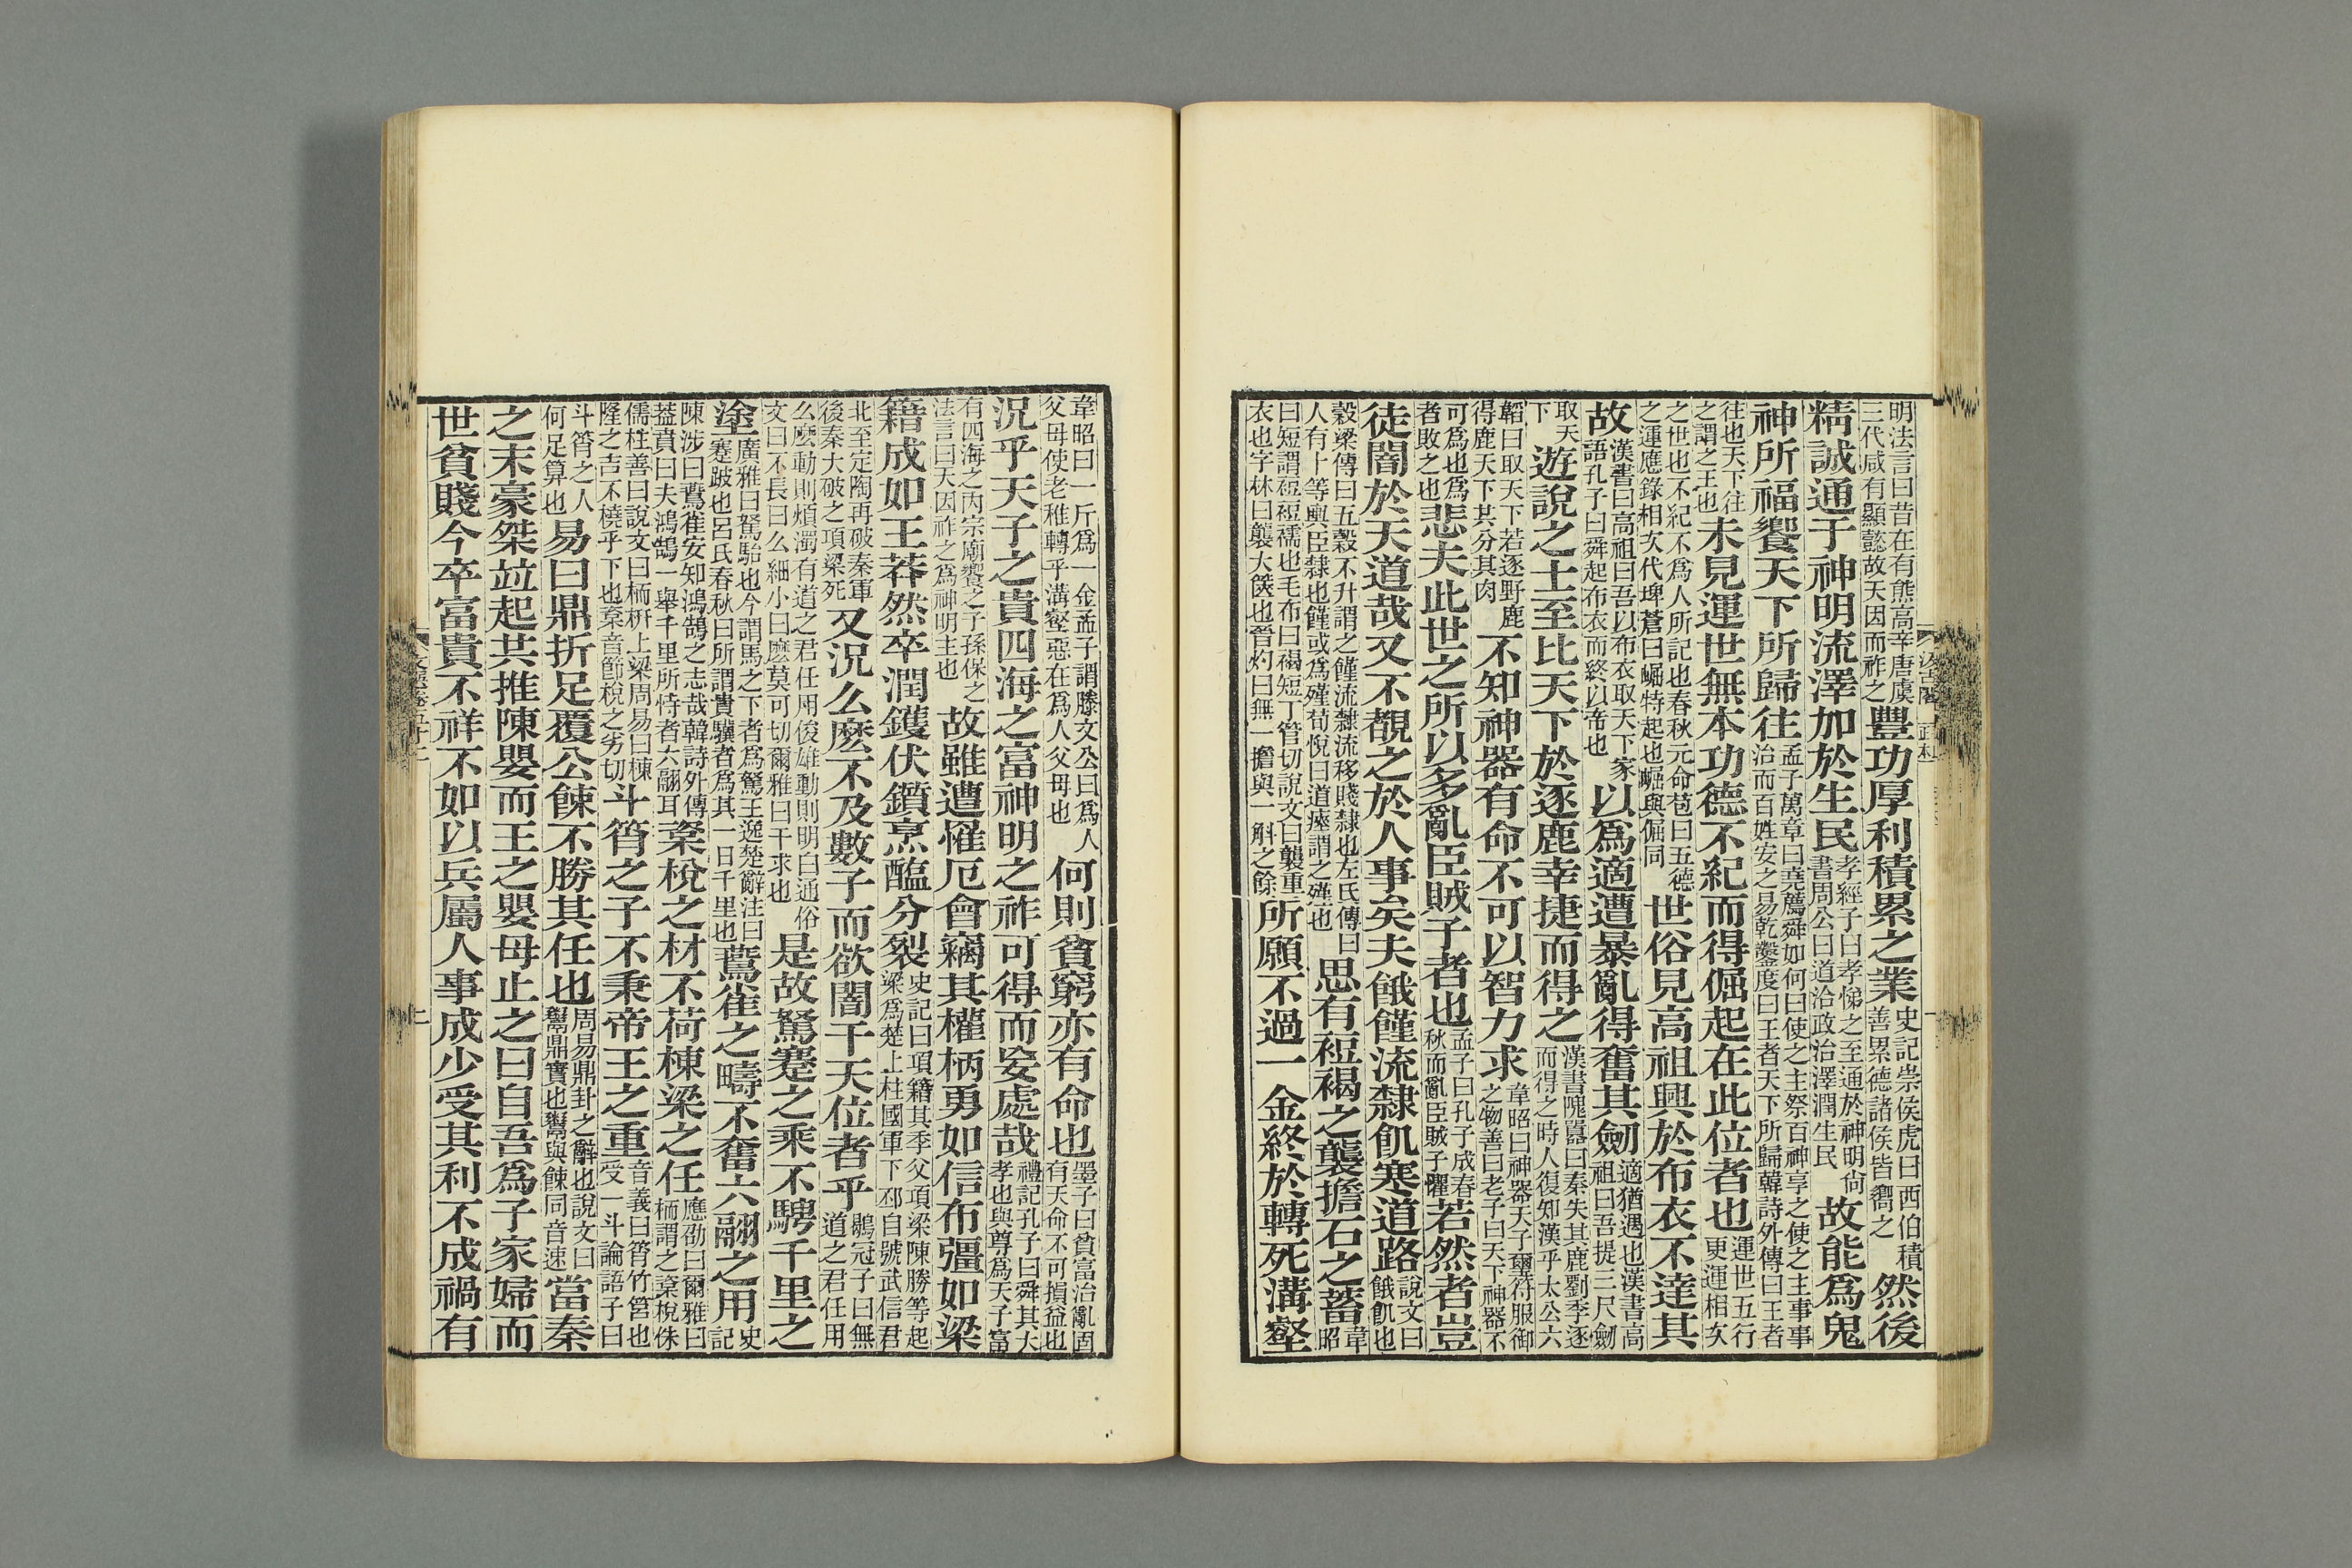 明法言曰昔在有熊高辛唐虞三代咸有顯懿故天因而祚之豐功厚利積累之業史記崇侯虎曰西伯積善累德諸侯皆嚮之然後
精誠通于神明流澤加於生民孝經子曰孝悌之至通於神明尙書周公曰道洽政治澤潤生民故能爲鬼
神所福饗天下所歸往孟子萬章曰堯薦舜如何曰使之主祭百神享之使之主事事治而百姓安之易乾鑿度曰王者天下所歸韓詩外傳曰王者
往也天下往之謂之王也未見運世無本功德不紀而得倔起在此位者也運世五行更運相次
之世也不紀不爲人所記也春秋元命苞曰五德之運應錄相次代埤蒼曰崛特起也崛與倔同世俗見高祖興於布衣不達其
故漢書曰高祖曰吾以布衣取天下家語孔子曰舜起布衣而終以帝也以爲適遭暴亂得奮其劒適猶遇也漢書高祖曰吾提三尺劒
取天下遊說之士至比天下於逐鹿幸捷而得之漢書隗囂曰秦失其鹿劉季逐而得之時人復知漢乎太公六
韜曰取天下若逐野鹿得鹿天下共分其肉不知神器有命不可以智力求韋昭曰神器天子璽符服御之物善曰老子曰天下神器不
可爲也爲者敗之也悲夫此世之所以多亂臣賊子者也孟子曰孔子成春秋而亂臣賊子懼若然者豈
徒闇於天道哉又不覩之於人事矣夫餓饉流隸飢寒道路說文曰餓飢也
穀梁傳曰五穀不升謂之饉流隸流移賤隸也左氏傳曰人有十等輿臣隸也饉或爲殣荀悅曰道瘞謂之殣也思有裋褐之襲擔石之蓄韋昭
曰短謂裋裋襦也毛布曰褐短丁管切說文曰襲重衣也字林曰襲大篋也晉灼曰無一擔與一斛之餘所願不過一金終於轉死溝壑
韋昭曰一斤爲一金孟子謂滕文公曰爲人父母使老稚轉乎溝壑惡在爲人父母也何則貧窮亦有命也墨子曰貧富治亂固有天命不可損益也
況乎天子之貴四海之富神明之祚可得而妄處哉禮記孔子曰舜其大孝也與尊爲天子富
有四海之內宗廟饗之子孫保之法言曰天因祚之爲神明主也故雖遭罹厄會竊其權柄勇如信布彊如梁
籍成如王莽然卒潤鑊伏鑕烹醢分裂史記曰項籍其季父項梁陳勝等起梁爲楚上柱國軍下邳自號武信君
北至定陶再破秦軍後秦大破之項梁死又況么麽不及數子而欲闇干天位者乎鶡冠子曰無道之君任用
么麽動則煩濁有道之君任用俊雄動則明白通俗文曰不長曰么細小曰麽莫可切爾雅曰干求也是故駑蹇之乘不騁千里之
塗廣雅曰駑駘也今謂馬之下者爲駑王逸楚辭注曰蹇跛也呂氏春秋曰所謂貴驥者爲其一日千里也鷰雀之疇不奮六翮之用史記
陳涉曰鷰雀安知鴻鵠之志哉韓詩外傳葢賁曰夫鴻鵠一舉千里所恃者六翮耳楶梲之材不荷棟梁之任應劭曰爾雅曰栭謂之楶梲侏
儒柱善曰說文曰栭枅上梁周易曰棟隆之吉不橈乎下也楶音節梲之劣切斗筲之子不秉帝王之重音義曰筲竹筥也受一斗論語子曰
斗筲之人何足算也易曰鼎折足覆公餗不勝其任也周易鼎卦之辭也說文曰鬻鼎實也鬻與餗同音速當秦
之末豪桀竝起共推陳嬰而王之嬰母止之曰自吾爲子家婦而
世貧賤今卒富貴不祥不如以兵屬人事成少受其利不成禍有